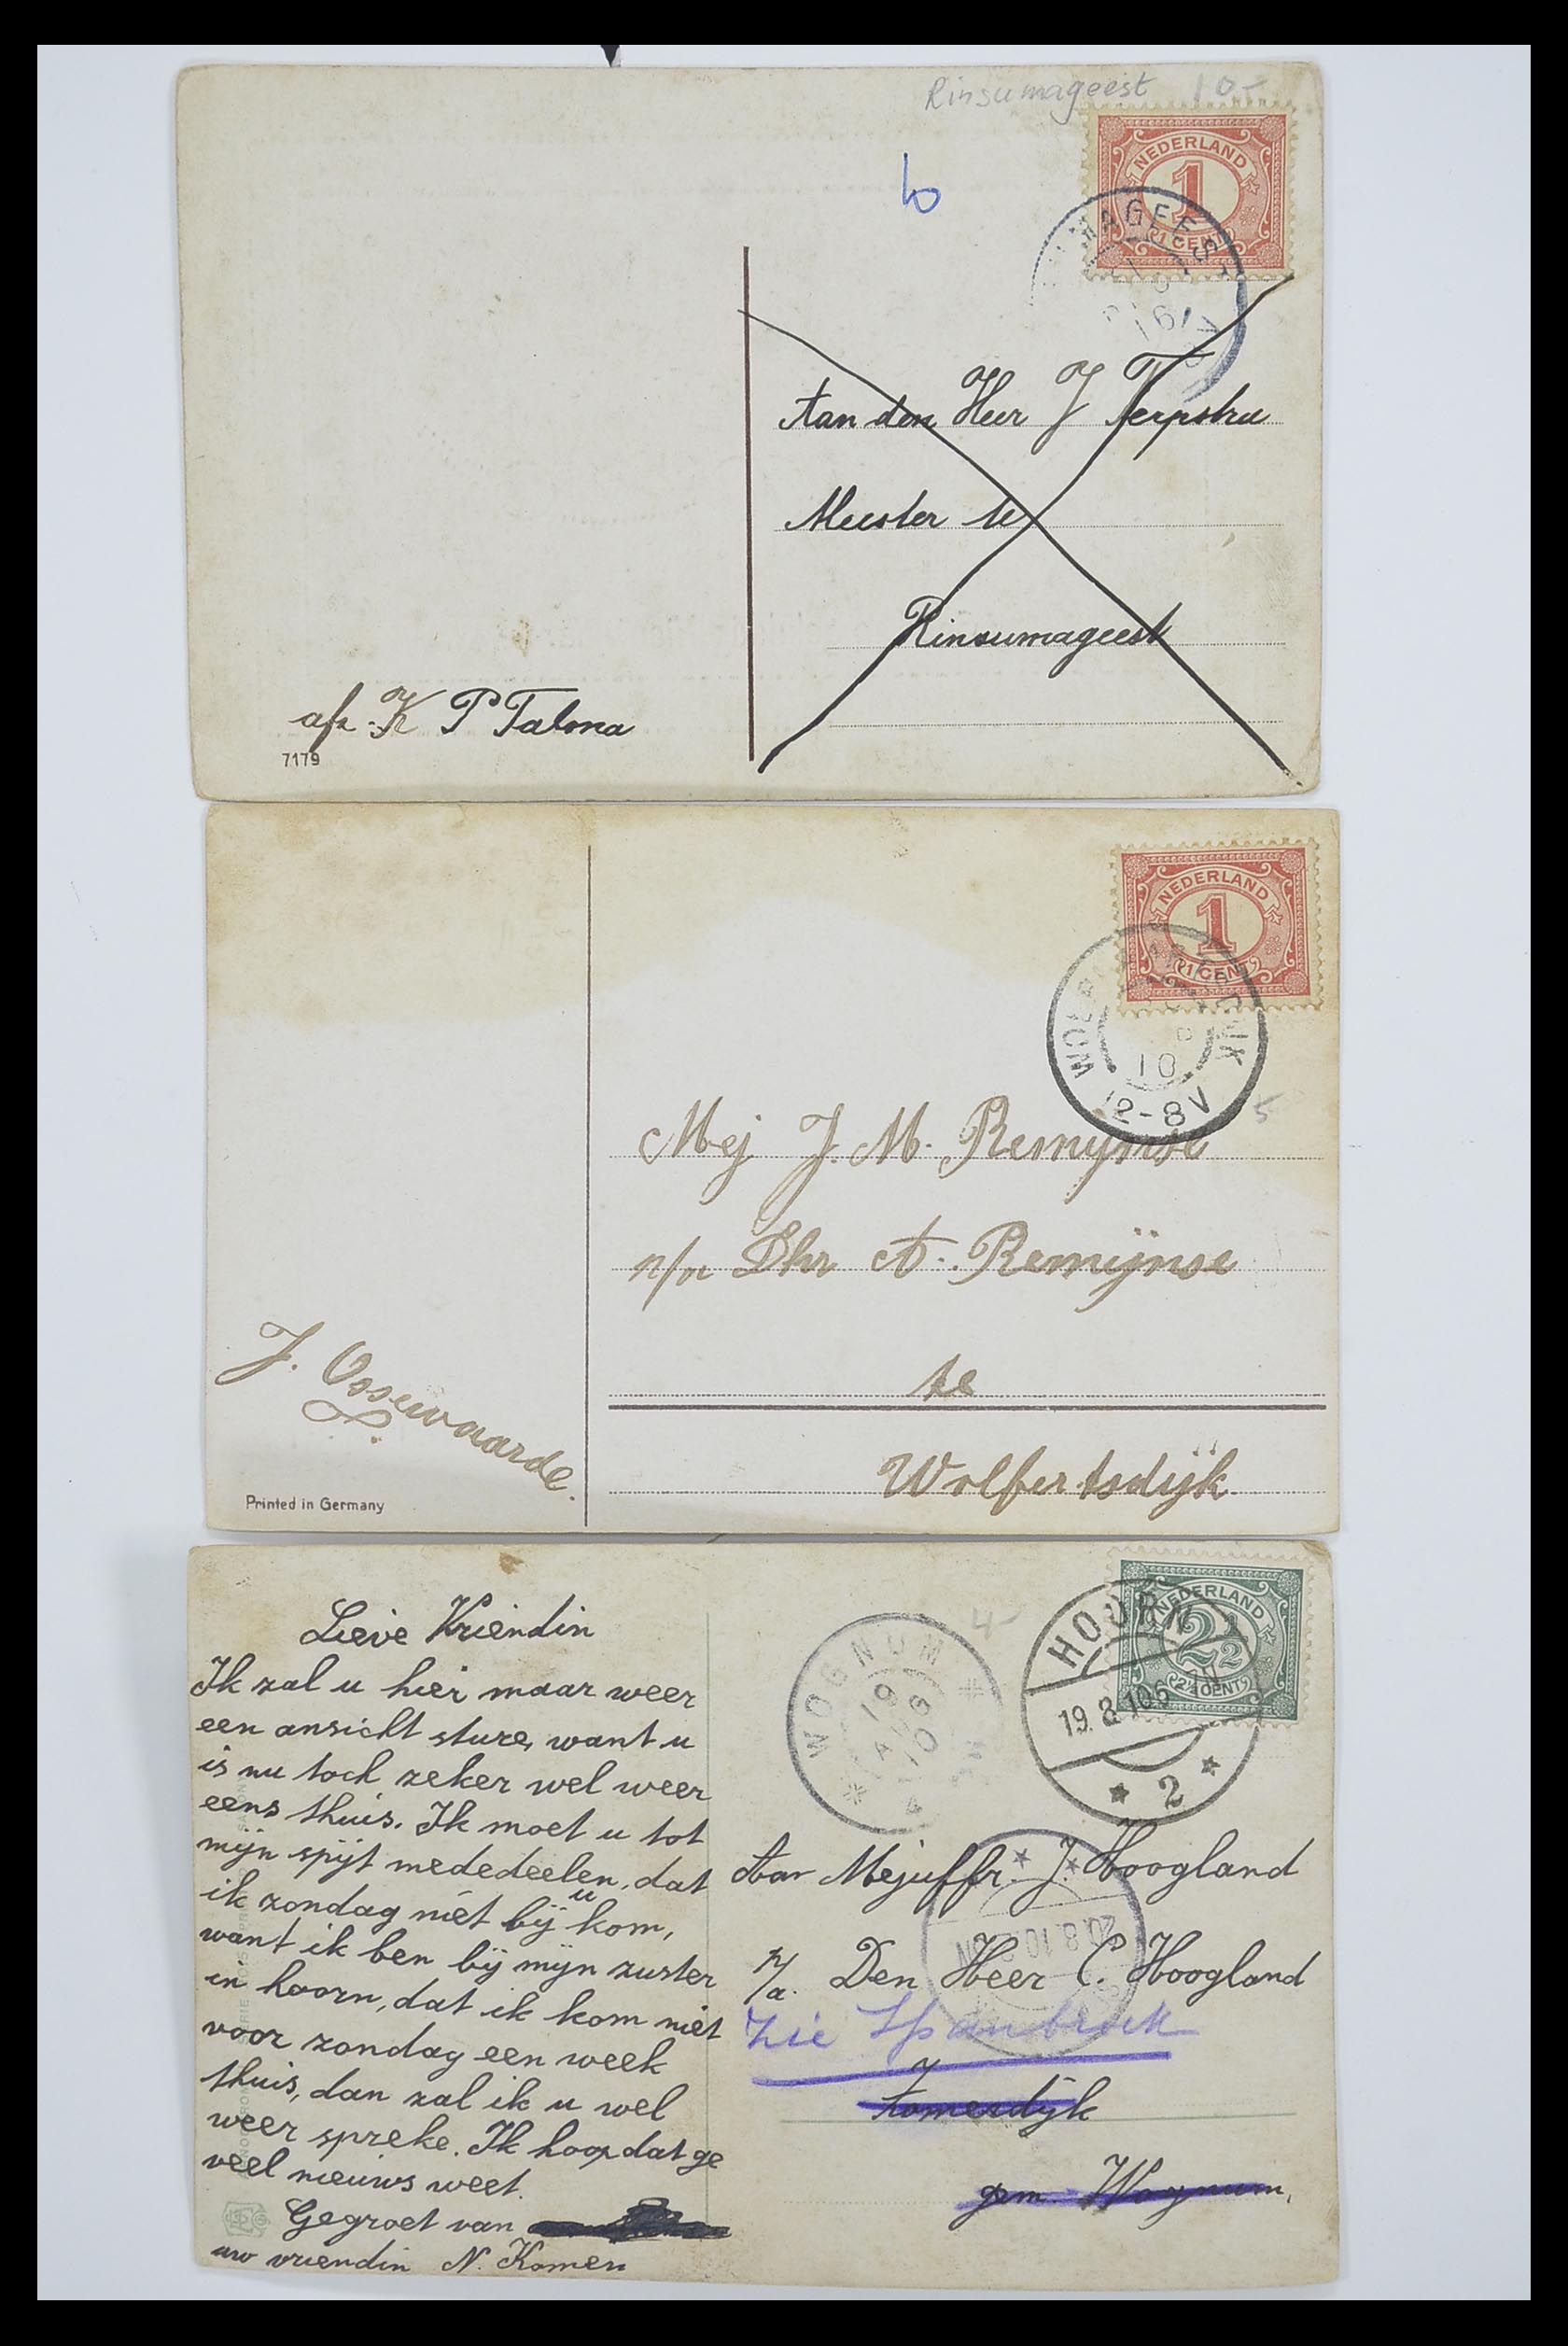 Rinsumageest 10-
NEDERLAND
1
1 CENT
MAGEEST
10
Aan den Heer J Terpstra
Meester te
Rinsumageest
afz. K P Talma
7179
NEDERLAND
1
1 CENT
10
12-8V
5
Mej J. M. Remijnse
p/a Dhr A. Remijnse
te
Wolfertsdijk.
J. Ossewaarde.
Printed in Germany
NEDERLAND
2½
2½ CENT
HOORN
19.8.10 6
2
WOGNUM
19
10
4-
20.8.10
Lieve Vriendin
Ik zal u hier maar weer
een ansicht sture, want u
is nu toch zeker wel weer
eens thuis. Ik moet u tot
mijn spijt mededeelen, dat
ik zondag niet bij u kom,
want ik ben bij mijn zuster
in hoorn, dat ik kom niet
voor zondag een week
thuis, dan zal ik u wel
weer spreke. Ik hoop dat ge
veel nieuws weet.
Gegroet van
uw vriendin N. Komen
Aan Mejuffr. J. Hoogland
p/a. Den Heer C. Hoogland
Zie Spanbroek
Zomerdijk
gem. Wognum.